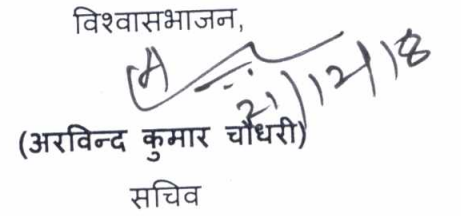 विश्वासभाजन,
21/12/18
(अरविन्द कुमार चौधरी)
सचिव